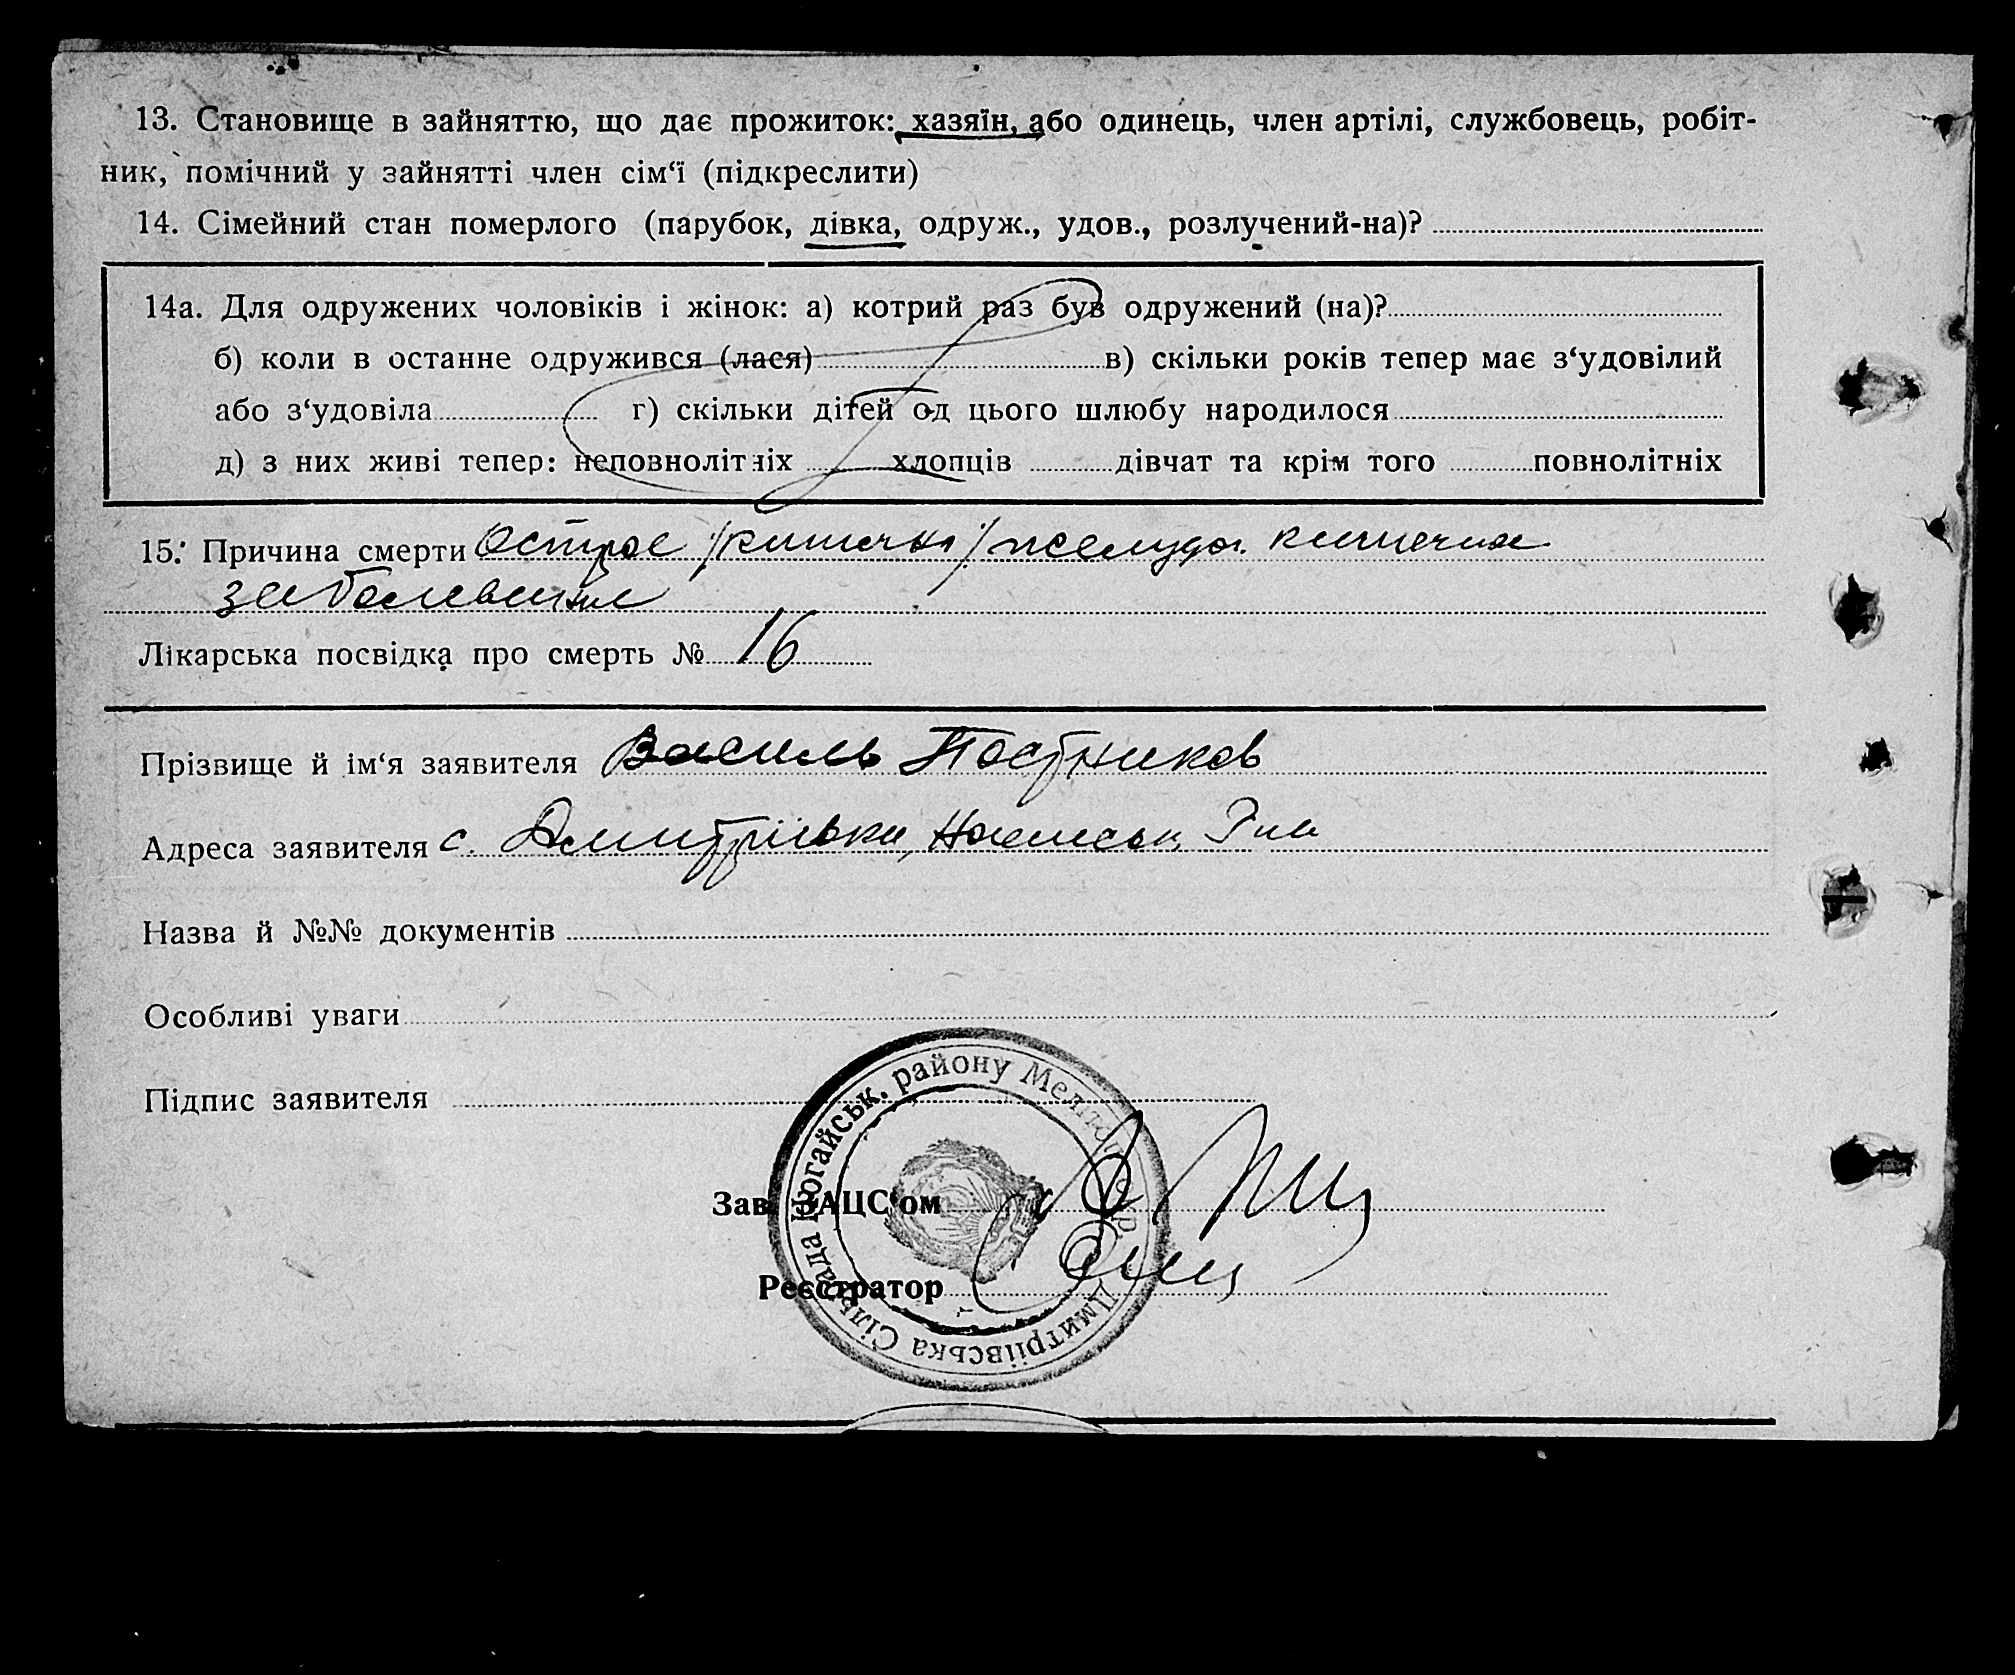 13. Становище в зайняттю, що дає прожиток: хазяїн, або одинець, член артілі, службовець, робіт-
ник, помічний у зайнятті член сім‘ї (підкреслити)
14. Сімейний стан померлого (парубок, дівка, одруж., удов., розлучений-на)?
14а. Для одружених чоловіків і жінок: а) котрий раз був одружений (на)?
б) коли в останне одружився (лася) в) скільки років тепер має з‘удовілий
або з‘удовіла г) скільки дітей од цього шлюбу народилося
д) з них живі тепер: неповнолітніх хлопців дівчат та крім того повнолітніх
15. Причина смерти Острое желудоч. кишечное
заболевание
Лікарська посвідка про смерть № 16
Прізвище й ім‘я заявителя Василь Постников
Адреса заявителя с. Дмитрівка,
Назва й №№ документів
Особливі уваги
Підпис заявителя
Дмитріївська Сільрада Ногайськ. району Меліт
Зав. ЗАЦС‘ом
Реєстратор